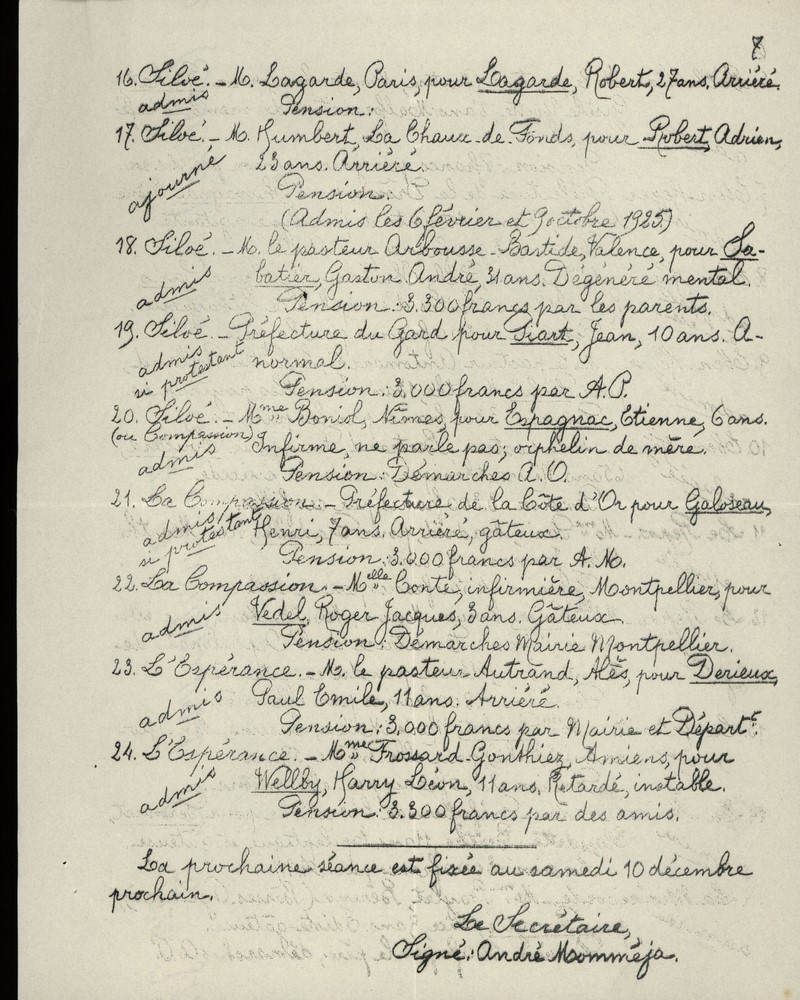 7
16. Siloé. - M. Lagarde, Paris, pour Lagarde, Robert, 27 ans. Arriéré.
admis
Pension:
17. Siloé. - M. Humbert, La Chaux-de-Fonds, pour Robert, Adrien,
ajourné
23 ans. Arriéré.
Pension:
(Admis les 6 février et 9 octobre 1925)
18. Siloé. - M. le pasteur Arbousse-Bastide, Valence, pour Sa-
admis
batier, Gaston André, 31 ans. Dégénéré mental.
Pension: 3.300 francs par les parents.
19. Siloé. - Préfecture du Gard pour Siart, Jean, 10 ans. A-
admis
si protestant
normal.
Pension: 3.000 francs par A.P.
20. Siloé. - Mme Boniol, Nîmes, pour Espagnac, Etienne, 6 ans.
(ou Compassion)
admis
Infirme, ne parle pas; orphelin de mère.
Pension: Démarches A.O.
21. La Compassion. - Préfecture de la Côte d'Or pour Galoseau,
admis
si protestant
Henri, 7 ans. Arriéré, gâteux.
Pension: 3.000 francs par A.M.
22. La Compassion. - Melle Conte, infirmière, Montpellier, pour
admis
Vedel, Roger Jacques, 3 ans. Gâteux.
Pension: Démarches Mairie Montpellier.
23. L'Espérance. - M. le pasteur Autrand, Alès, pour Derieux,
admis
Paul Emile, 11 ans. Arriéré.
Pension: 3.000 francs par Mairie et Départt.
24. L'Espérance. - Mme Frossard-Gonthiez, Amiens, pour
admis
Wellby, Harry Léon, 11 ans. Retardé, instable.
Pension: 3.300 francs par des amis.
La prochaine séance est fixée au samedi 10 décembre
prochain.
Le Secrétaire,
Signé: André Momméja.